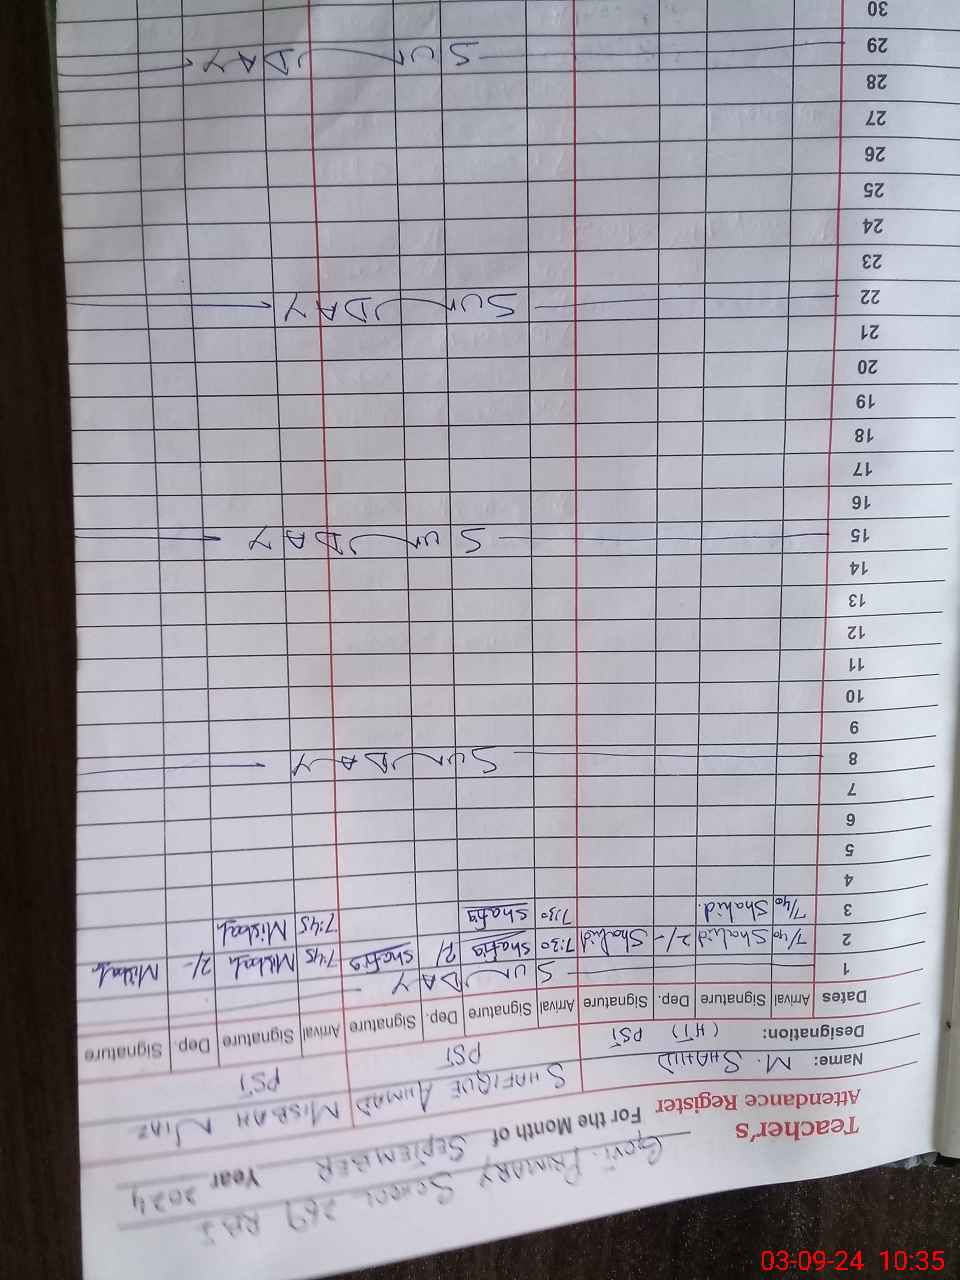 Govt. PRIMARY SCHOOL 269 RB-I
Teacher's
Attendance Register
For the Month of SEPTEMBER Year 2024
Name: M. SHAHID SHAFIQUE AHMAD MISBAH NIAZ
Designation: (HT) PST PST PST
Dates Arrival Signature Dep. Signature Arrival Signature Dep. Signature Arrival Signature Dep. Signature
1 SUNDAY
2 7/40 Shahid 2/- Shahid 7:30 Shafiq 2/ Shafiq 7:45 Misbah 2/- Misbah
3 7/40 Shahid. 7:30 Shafiq 7:45 Misbah
4
5
6
7
8 SUNDAY
9
10
11
12
13
14
15 SUNDAY
16
17
18
19
20
21
22 SUNDAY
23
24
25
26
27
28
29 SUNDAY
30
03-09-24 10:35